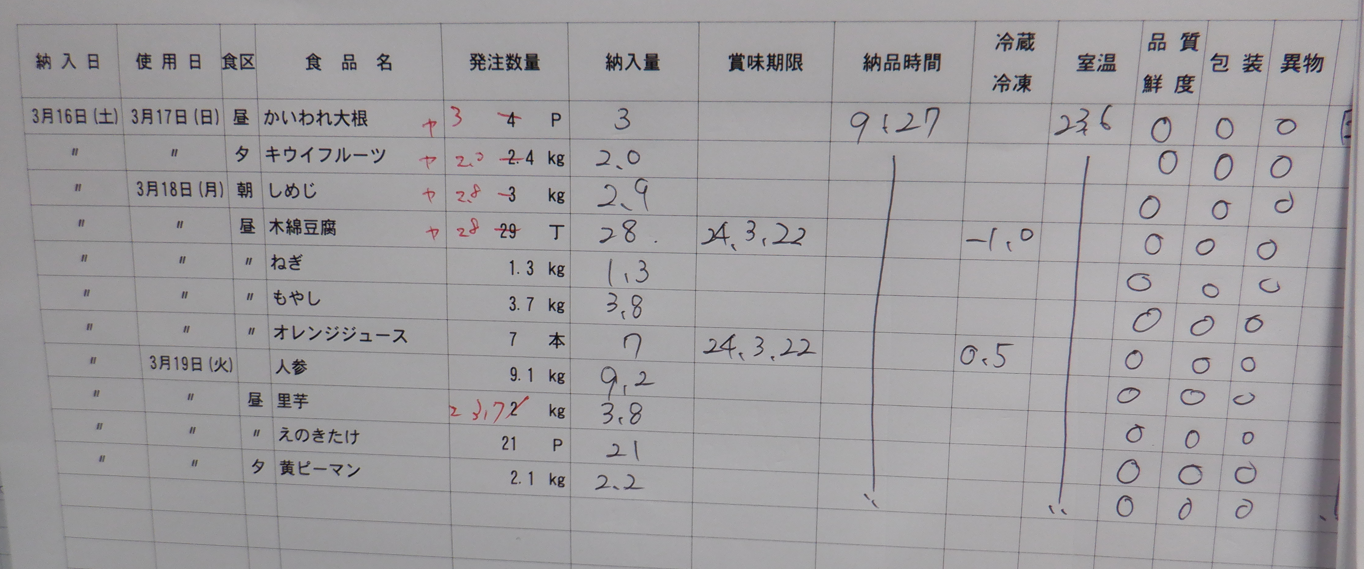 納入日 使用日 食区 食品名 発注数量 納入量 賞味期限 納品時間 冷蔵冷凍 室温 品質鮮度 包装 異物
3月16日(土) 3月17日(日) 昼 かいわれ大根 ヤ 3 4 P 3 9:27 23.6 ○ ○ ○
〃 〃 夕 キウイフルーツ ヤ 2.0 2.4 kg 2.0 ○ ○ ○
〃 3月18日(月) 朝 しめじ ヤ 2.8 3 kg 2.9 ○ ○ ○
〃 〃 昼 木綿豆腐 ヤ 28 29 丁 28 24.3.22 -1.0 ○ ○ ○
〃 〃 〃 ねぎ 1.3 kg 1.3 ○ ○ ○
〃 〃 〃 もやし 3.7 kg 3.8 ○ ○ ○
〃 〃 〃 オレンジジュース 7 本 7 24.3.22 0.5 ○ ○ ○
〃 3月19日(火) 人参 9.1 kg 9.2 ○ ○ ○
〃 〃 昼 里芋 3.7 2 kg 3.8 ○ ○ ○
〃 〃 〃 えのきたけ 21 P 21 ○ ○ ○
〃 〃 夕 黄ピーマン 2.1 kg 2.2 〃 〃 ○ ○ ○